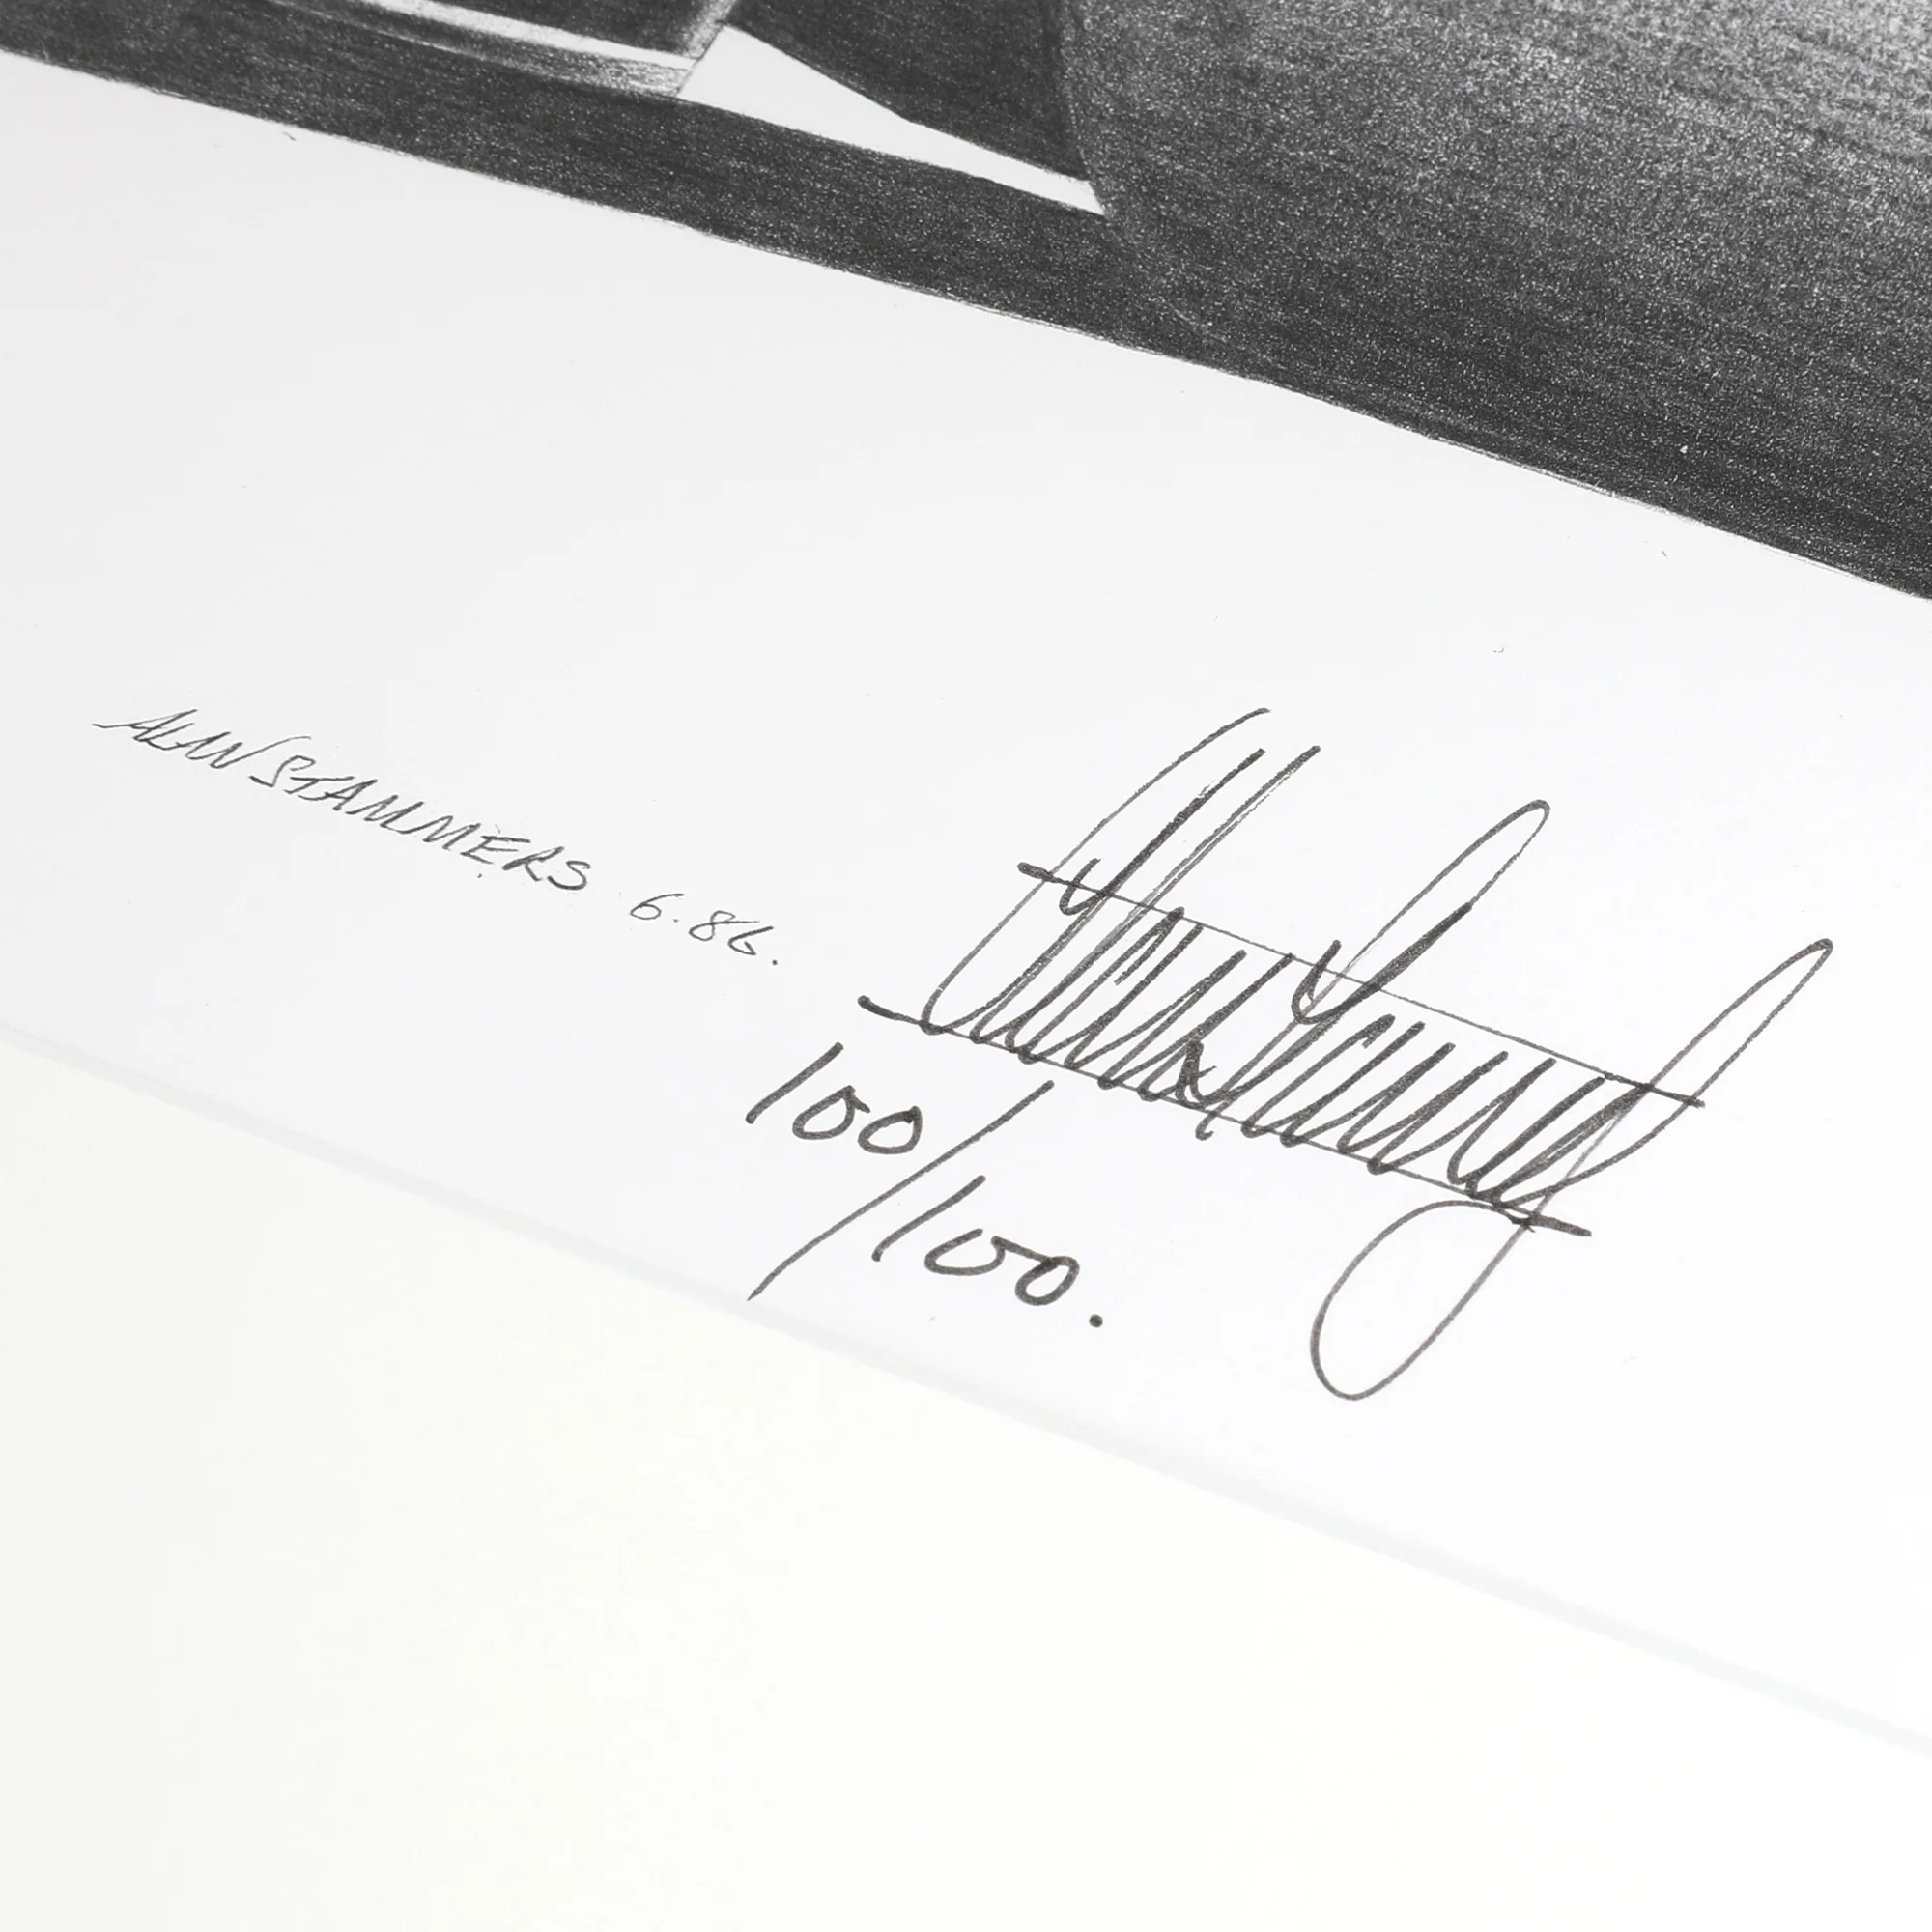 ALAN STAMMERS 6.86.
100/100.